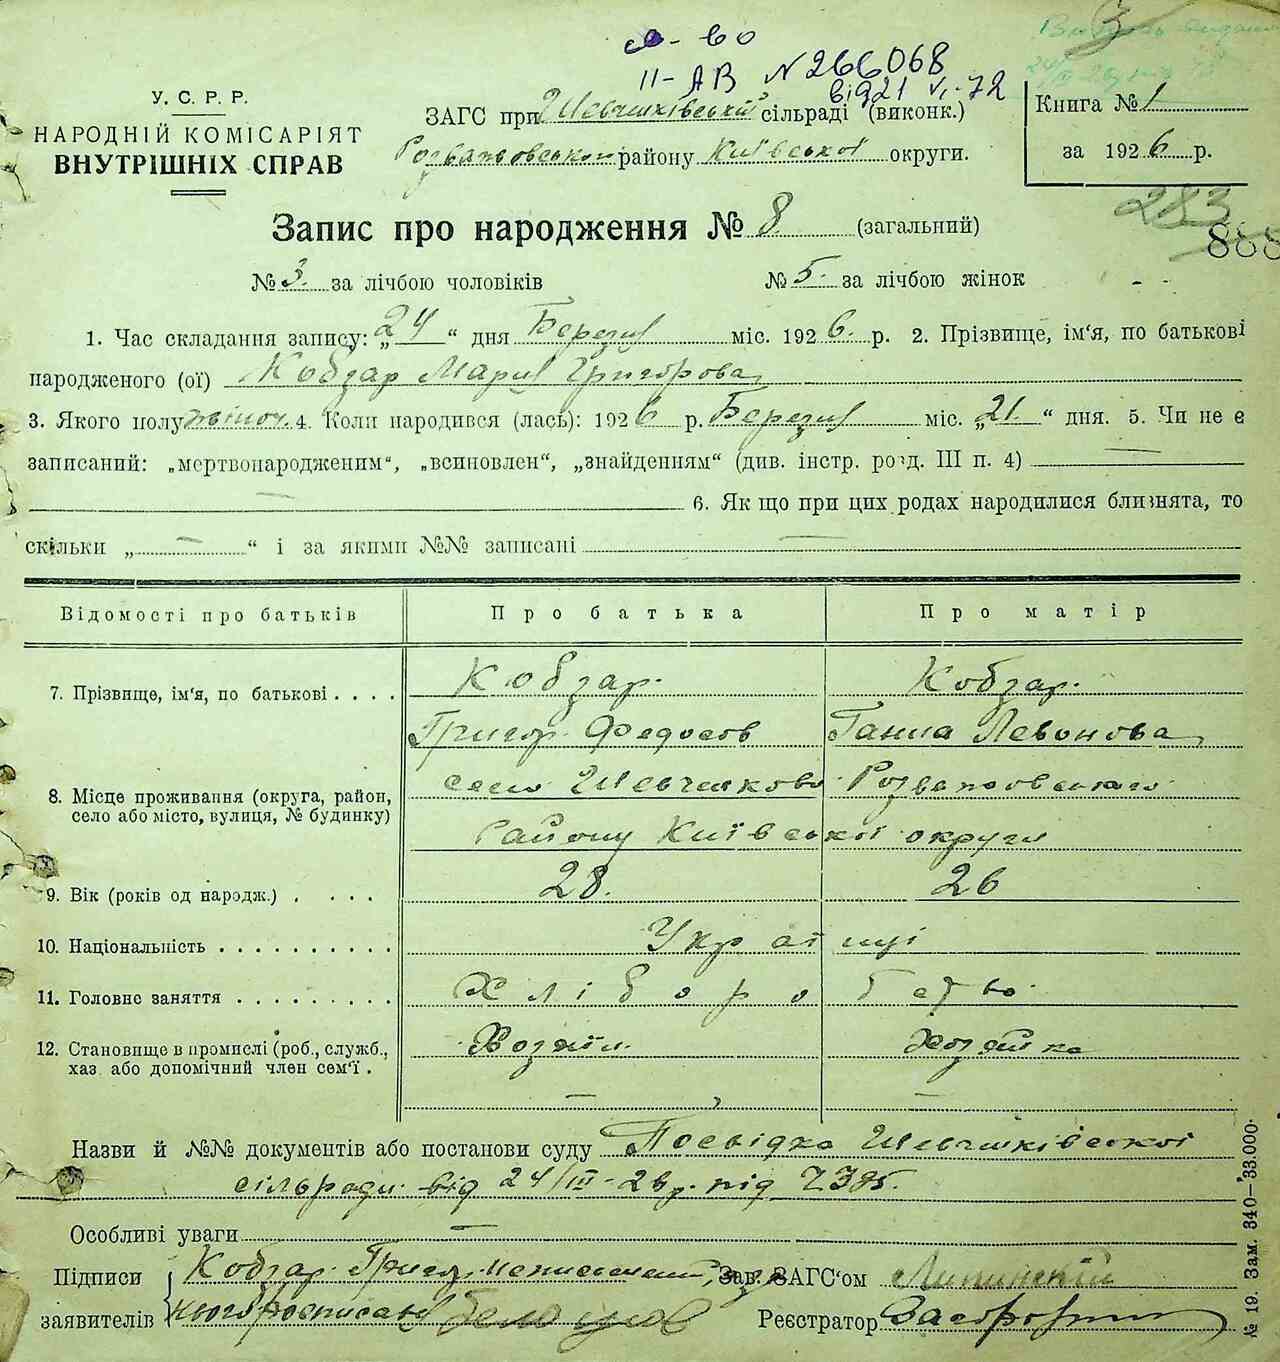 св-во
II-АВ N 266068
від 21 VI-72
У. С. Р. Р.
НАРОДНІЙ КОМІСАРІЯТ
ВНУТРІШНІХ СПРАВ
ЗАГС при Шевченківській сільраді (виконк.)
району Київської округи.
Книга № 1
за 1926 р.
283
888
Запис про народження № 8 (загальний)
№ 3. за лічбою чоловіків № 5. за лічбою жінок
1. Час складання запису: „24“ дня Березня міс. 1926. р. 2. Прізвище, ім'я, по батькові
народженого (ої) Кобзар Марія Григорова
3. Якого полу жіноч. 4. Коли народився (лась): 1926 р. Березня міс. „21“ дня. 5. Чи не є
записаний: „мертвонародженим“, „всиновлен“, „знайденням“ (див. інстр. розд. III п. 4) —
— 6. Якщо при цих родах народилися близнята, то
скільки „—“ і за якими №№ записані —
Відомості про батьків Про батька Про матір
7. Прізвище, ім'я, по батькові . . . . Кобзар. Кобзар.
Григор. Федосов Ганна Левонова
8. Місце проживання (округа, район,
село або місто, вулиця, № будинку)
село
Району Київської округи
9. Вік (років од народж.) . . . . 28. 26
10. Національність . . . . . . . . . . Українці
11. Головне заняття . . . . . . . . . Хліборобство
12. Становище в промислі (роб., служб.,
хаз. або допомічний член сем'ї . Хозяїн. Хозяйка
— —
Назви й №№ документів або постанови суду Посвідка Шевченківської
сільради від 24/III-26р. під
Особливі уваги —
Підписи
заявителів
Кобзар Григор.
Зав. ЗАГС'ом
Реєстратор
№ 19. Зам. 340—33.000.